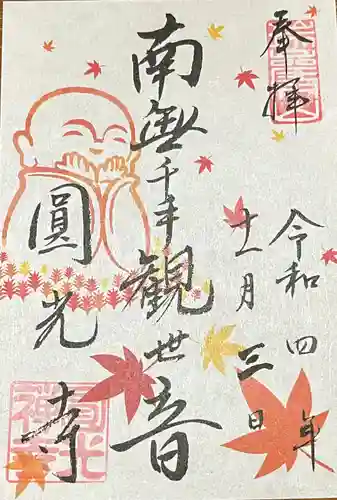 奉拝
令和四年
十一月三日
南無千手観世音
圓光寺